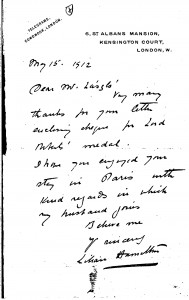 TELEGRAMS,
LONDON.
6, ST ALBANS MANSION,
KENSINGTON COURT,
LONDON, W.
May 15- 1912
Dear Mr. László
Very many
thanks for your letter
enclosing cheque for Lord
medal.
I hope you enjoyed your
stay in Paris with
kind regards in which
my husband joins
Believe me
Yrs sincerely
Lilian Hamilton